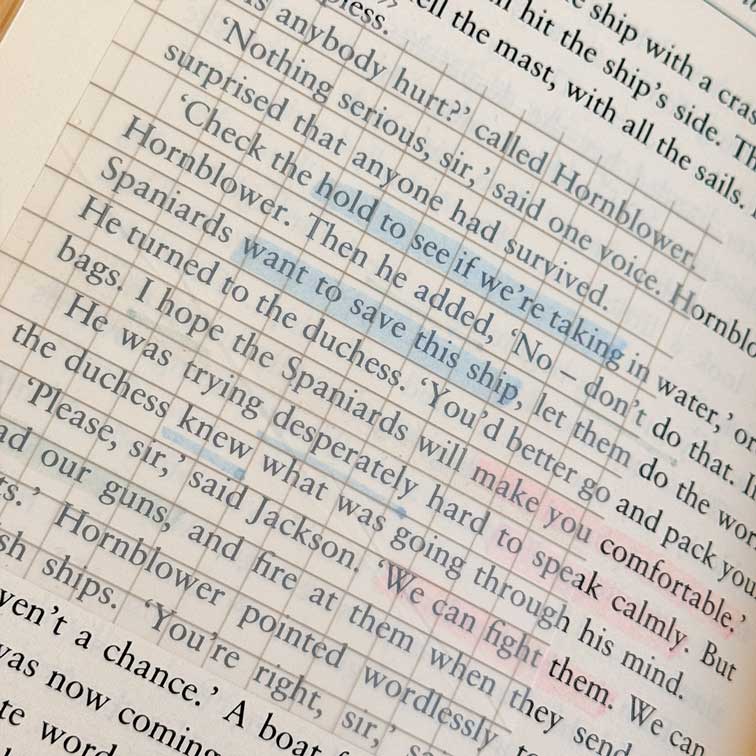 ship with a cras
hit the ship's side. Th
ell the mast, with all the sails.
pless.
is anybody hurt?' called Hornblower.
'Nothing serious, sir,' said one voice. Hornblo
surprised that anyone had survived.
'Check the hold to see if we're taking in water,' or
Hornblower. Then he added, 'No – don't do that. I
Spaniards want to save this ship, let them do the wor
He turned to the duchess. 'You'd better go and pack you
bags. I hope the Spaniards will make you comfortable.'
He was trying desperately hard to speak calmly. But
the duchess knew what was going through his mind.
'Please, sir,' said Jackson. 'We can fight them. We can
ad our guns, and fire at them when they send
ts.' Hornblower pointed wordlessly to
sh ships. 'You're right, sir,' sa
ven't a chance.' A boat f
was now coming
te word